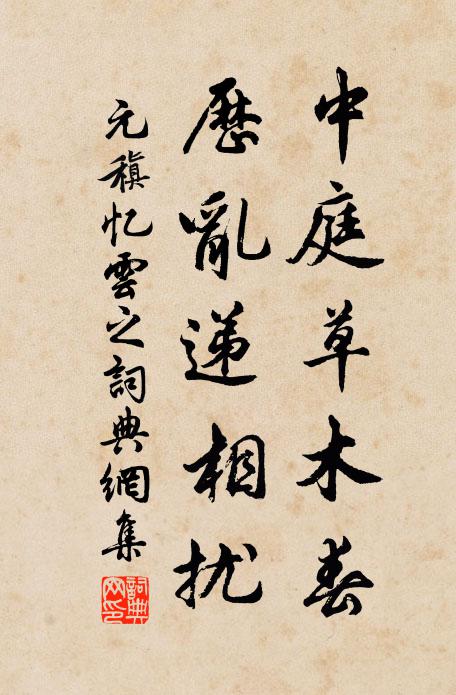 中庭草木春
歷亂递相扰
元稹忆雲之詞典網集
詞典网印